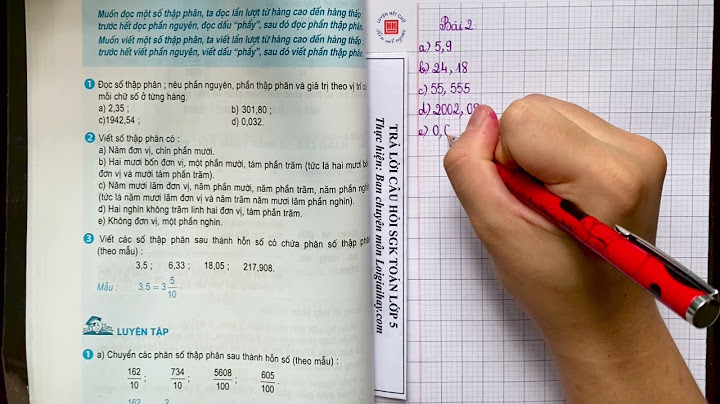 Muốn đọc một số thập phân, ta đọc lần lượt từ hàng cao đến hàng thấp :
trước hết đọc phần nguyên, đọc dấu "phẩy", sau đó đọc phần thập phân.
Muốn viết một số thập phân, ta viết lần lượt từ hàng cao đến hàng thấp :
trước hết viết phần nguyên, viết dấu "phẩy", sau đó viết phần thập phân.
1 Đọc số thập phân ; nêu phần nguyên, phần thập phân và giá trị theo vị trí của
mỗi chữ số ở từng hàng.
a) 2,35 ; b) 301,80 ;
c)1942,54 ; d) 0,032.
2 Viết số thập phân có :
a) Năm đơn vị, chín phần mười.
b) Hai mươi bốn đơn vị, một phần mười, tám phần trăm (tức là hai mươi bốn
đơn vị và mười tám phần trăm).
c) Năm mươi lăm đơn vị, năm phần mười, năm phần trăm, năm phần nghìn
(tức là năm mươi lăm đơn vị và năm trăm năm mươi lăm phần nghìn).
d) Hai nghìn không trăm linh hai đơn vị, tám phần trăm.
e) Không đơn vị, một phần nghìn.
3 Viết các số thập phân sau thành hỗn số có chứa phân số thập phân
(theo mẫu) :
3,5 ; 6,33 ; 18,05 ; 217,908.
Mẫu : 3,5 = 3 5/10 .
LUYỆN TẬP
1 a) Chuyển các phân số thập phân sau thành hỗn số (theo mẫu) :
162/10 ; 734/10 ; 5608/100 ; 605/100 .
162 2
TRẢ LỜI CÂU HỎI SGK TOÁN LỚP 5
Thực hiện: Ban chuyên môn Loigiaihay.com
Bài 2
a) 5,9
b) 24, 18
c) 55, 555
d) 2002, 08
e) 0, 0